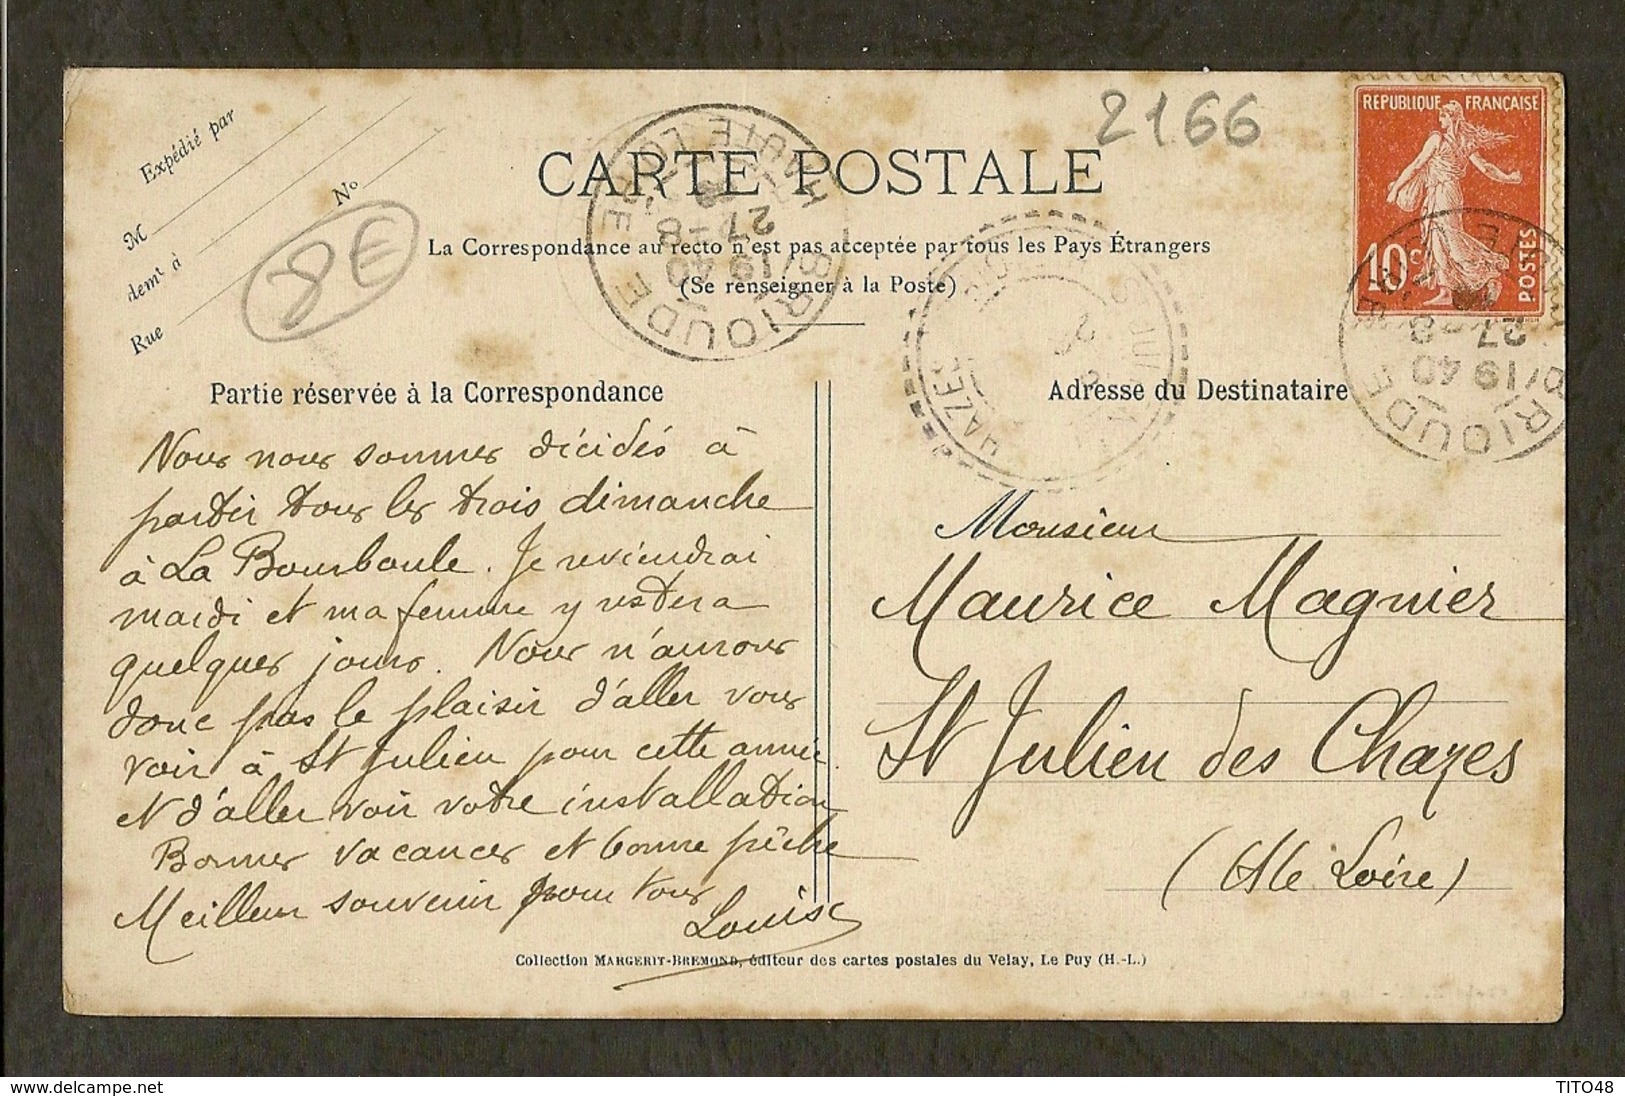 Expédié par
M
demt à
Rue
No
8€
2166
CARTE POSTALE
La Correspondance au recto n'est pas acceptée par tous les Pays Étrangers
(Se renseigner à la Poste)
REPUBLIQUE FRANÇAISE
10c
POSTES
BRIOUDE
HAUTE LOIRE
19 40
27-8
BRIOUDE
19 40
27-8
Partie réservée à la Correspondance
Nous nous sommes décidés à
partir tous les trois dimanche
à La Bourboule. Je reviendrai
mardi et ma femme y restera
quelques jours. Nous n'aurons
donc pas le plaisir d'aller vous
voir à St Julien pour cette année
et d'aller voir votre installation
Bonnes vacances et bonne pêche
Meilleur souvenir pour tous
Louise
Adresse du Destinataire
Monsieur
Maurice Magnier
St Julien des Chazes
(Hte Loire)
Collection MARGERIT-BREMOND, éditeur des cartes postales du Velay, Le Puy (H.-L.)
delcampe.net
TITO48